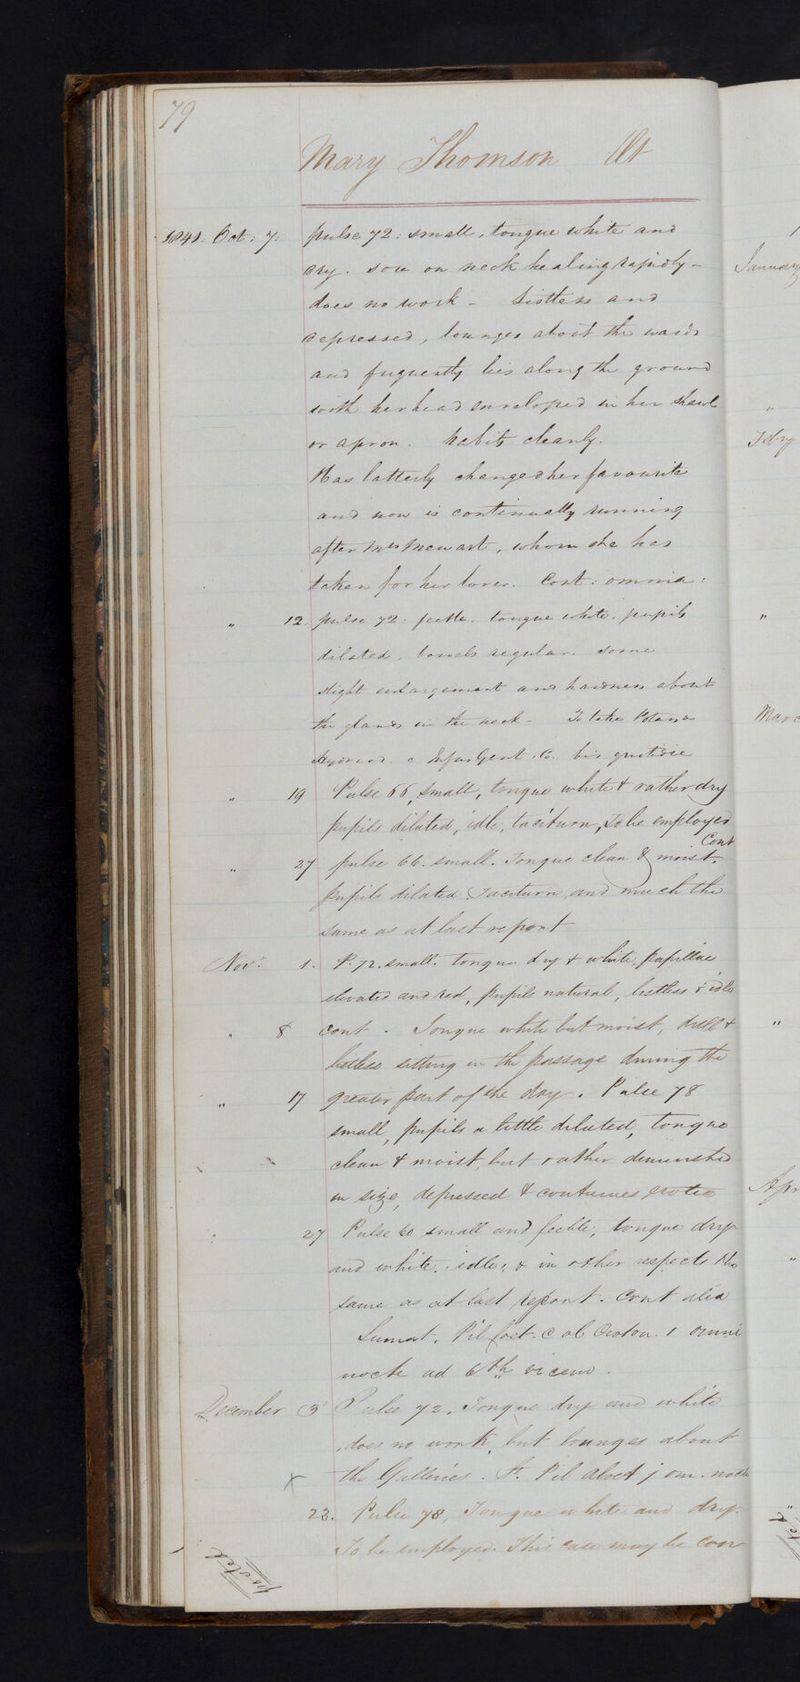 79
Mary Thomson
1841. Oct: 7. pulse 72. small, tongue white and
dry. sore on neck healing rapidly -
does no work - Listless and
depressed, lounges about the wards
and frequently lies along the ground
with her head enveloped in her shawl
or apron. habits cleanly.
Has latterly changed her favourite
and now is continually running
after Mrs, whom she has
taken for her lover. Cont: omnia:
" 12 pulse 72. feeble. tongue white. pupils
dilated, bowels regular. some
slight enlargement and hardness about
the glands in the neck - To take Potassa
c Infus Gent. Co. bis quotidie
" 19 Pulse 66, small, tongue white & rather dry
pupils dilated, idle, taciturn, To be employed
Cont
" 27 pulse 66. small. Tongue clean & moist.
pupils dilated Taciturn, and much the
same as at last report
Novr. 1. P. 72. small. tongue dry & white, papillae
elevated and red, pupils natural, listless & idle
" 8 cont. Tongue white but moist, dull &
listless sitting in the passage during the
" 17 greater part of the day. Pulse 78
small, pupils a little dilated, tongue
clean & moist, but rather diminished
in size, depressed & continues erotic
27 Pulse 60 small and feeble, tongue dry
and white. idle, & in other respects the
same as at last report. Cont alia
Sumat. Pil foet. c ol Croton. 1 omni
nocte ad 6th vicem.
December 3 Pulse 72. Tongue dry and white
does no work, but lounges about
x the Galleries. Pil Aloet j om. nocte
23. Pulse 78, Tongue white and dry.
To be employed. This case may be con
posted
January
"
Feby
"
Marc
"
Apr
"